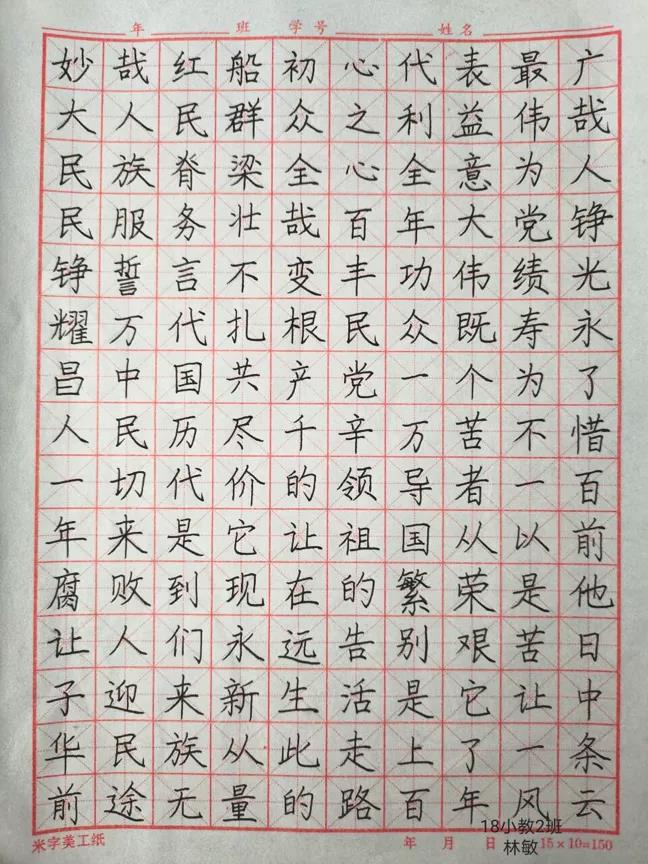 年 班 学号 姓名
妙哉红船初心代表最广
大人民群众之利益伟哉
民族脊梁全心全意为人
民服务壮哉百年大党铮
铮誓言不变丰功伟绩光
耀万代扎根民众既寿永
昌中国共产党一个为了
人民历尽千辛万苦不惜
一切代价的领导者一百
年来是它让祖国从以前
腐败到现在的繁荣是他
让人们永远告别艰苦日
子迎来新生活是它让中
华民族从此走上了一条
前途无量的路百年风云
18小教2班
林敏
米字美工纸 年 月 日 15×10=150